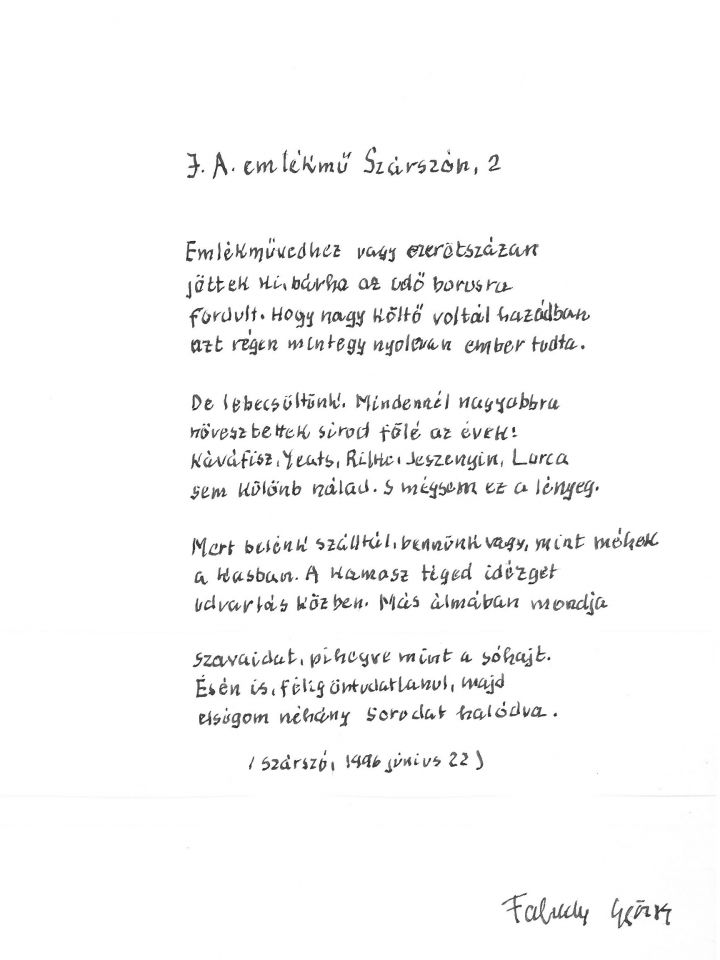 J. A. emlékmű Szárszón, 2
Emlékművedhez vagy ezerötszázan
jöttek ki, bárha az idő borusra
fordult. Hogy nagy költő voltál hazádban
azt régen mintegy nyolcvan ember tudta.
De lebecsültünk. Mindennél nagyobbra
növesztettek sirod fölé az évek:
Kaváfisz, Yeats, Rilke, Jeszenyin, Lorca
sem különb nálad. S mégsem ez a lényeg.
Mert belénk szálltál, bennünk vagy, mint méhek
a kasban. A kamasz téged idézget
udvarlás közben. Más álmában mondja
szavaidat, pihegve mint a sóhajt.
És én is, félig öntudatlanul, majd
elsúgom néhány sorodat halódva.
(Szárszó, 1996 június 22)
Faludy György